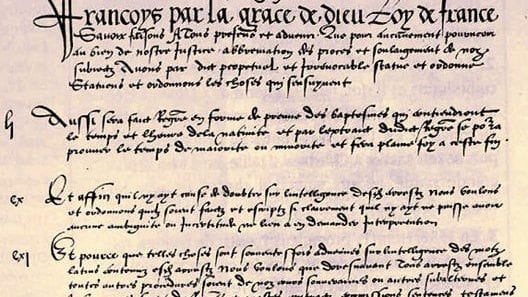 Francoys par la grace de dieu Roy de france
Savoir faisons A Tous presens et advenir Que pour aucunement pourveoir
au bien de nostre Justice abbreviation des proces et soulagement de noz
subiectz Avons par edit perpetuel et Irrevocable statue et ordonne
Statuons et ordonnons les choses qui sensuyvent
Aussi sera faict Regre en forme de preuve des baptesmes qui contiendront
le temps et lheure de la nativite et par lextraict dudict Regre se pora
prouver le temps de maiorite ou minorite et fera plaine foy a ceste fin
cx Et affin quil ny ayt cause de doubter sur lintelligence desdz arrestz Nous voulons
et ordonnons quilz soient faictz et escriptz si clairement quil ny ayt ne puisse avoir
aucune ambiguite ou Incertitude ne lieu a en demander Interpretation
cxi Et pource que telles choses sont souventesfois advenues sur lintelligence des motz
latins contenuz esdz arrestz Nous voulons que doresnavant Tous arrestz ensemble
toutes autres procedures soient de noz cours souveraines ou autres subalternes et